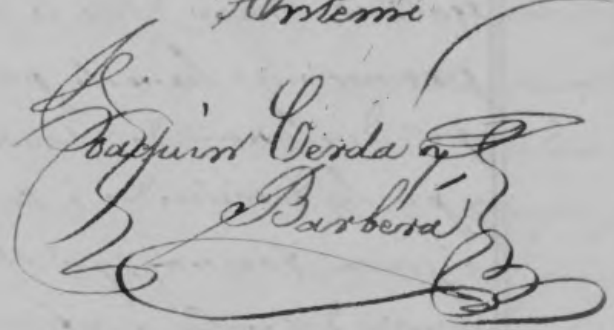 Antemi
Joaquin Cerda y
Barberá